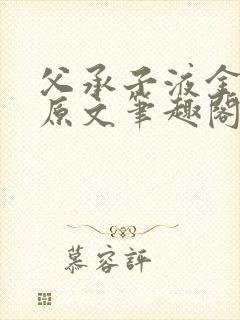 父承子液金
原文笔趣阁
慕容评